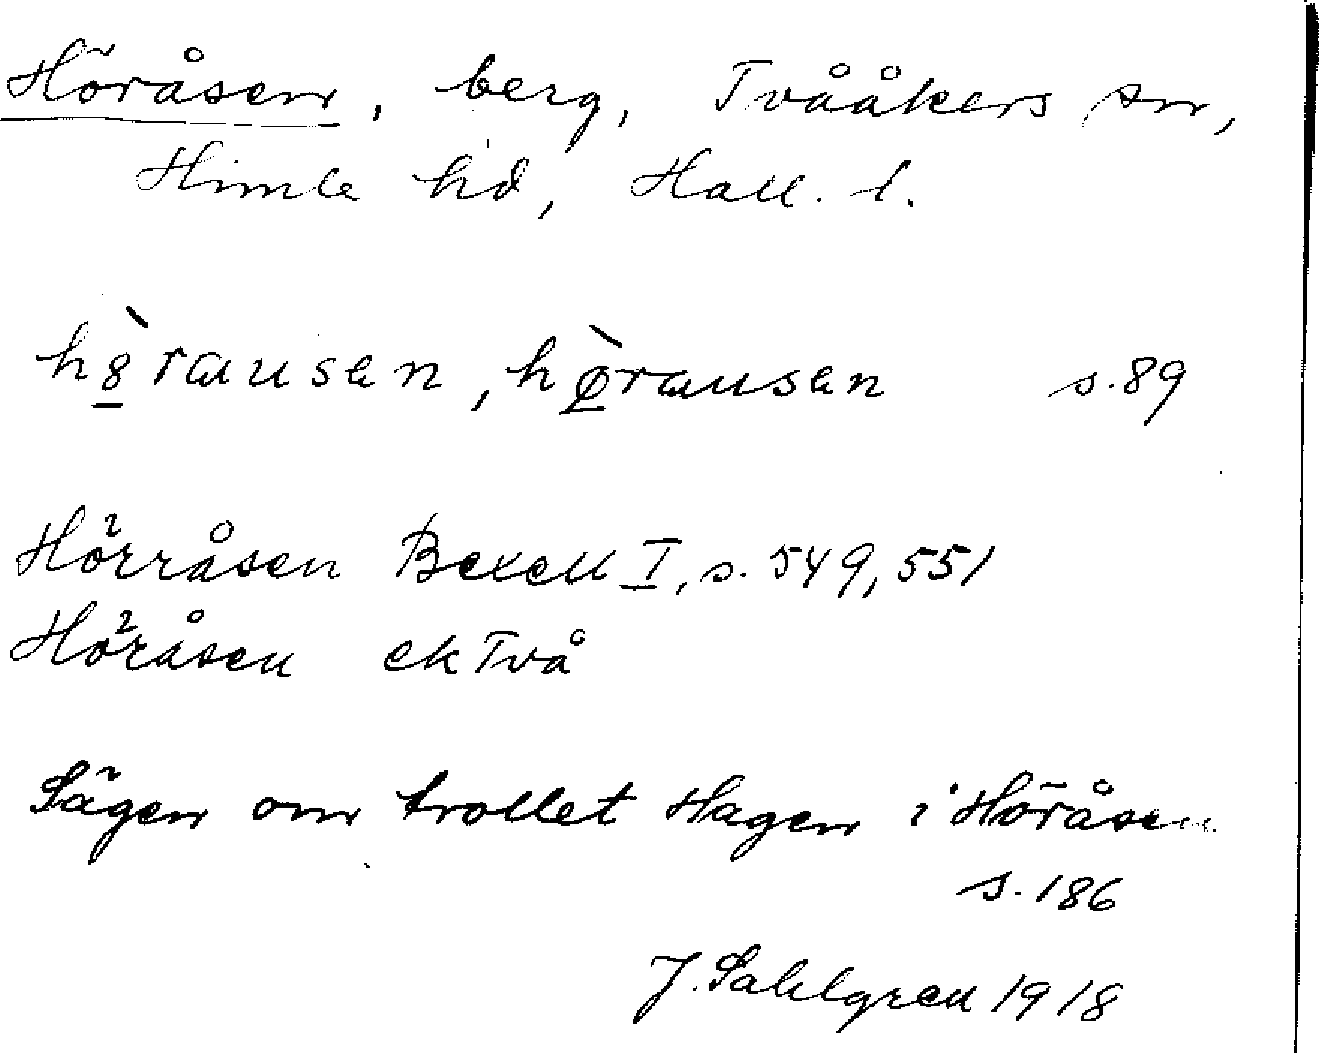 Höråsen, berg, Tvååkers sn,
Himle hd, Hall. l.
h8̲̀rausen, hø̲̀rausen s. 89
Hörråsen Bexell I, s. 549, 551
Höråsen ek Två
Sägen om trollet Hagen i Höråsen
s. 186
J. Sahlgren 1918